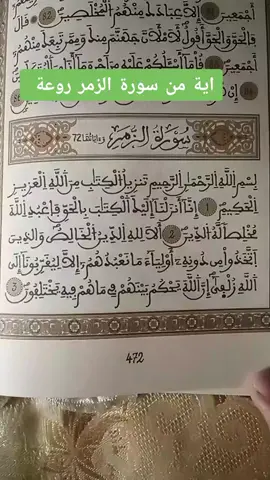 أجمعين 81 إلا عبادك منهم المخلصين 82 قال
فالحق والحق أقول لأملأن جهنم منك وممن تبعك منهم
أجمعين
اية من سورة الزمر روعة
سورة الزمر
72
بسم الله الرحمن الرحيم تنزيل الكتاب من الله العزيز
الحكيم 1 إنا أنزلنا إليك الكتاب بالحق فاعبد الله
مخلصا له الدين 2 ألا لله الدين الخالص والذين
اتخذوا من دونه أولياء ما نعبدهم إلا ليقربونا إلى
الله زلفى إن الله يحكم بينهم في ما هم فيه يختلفون 3
472